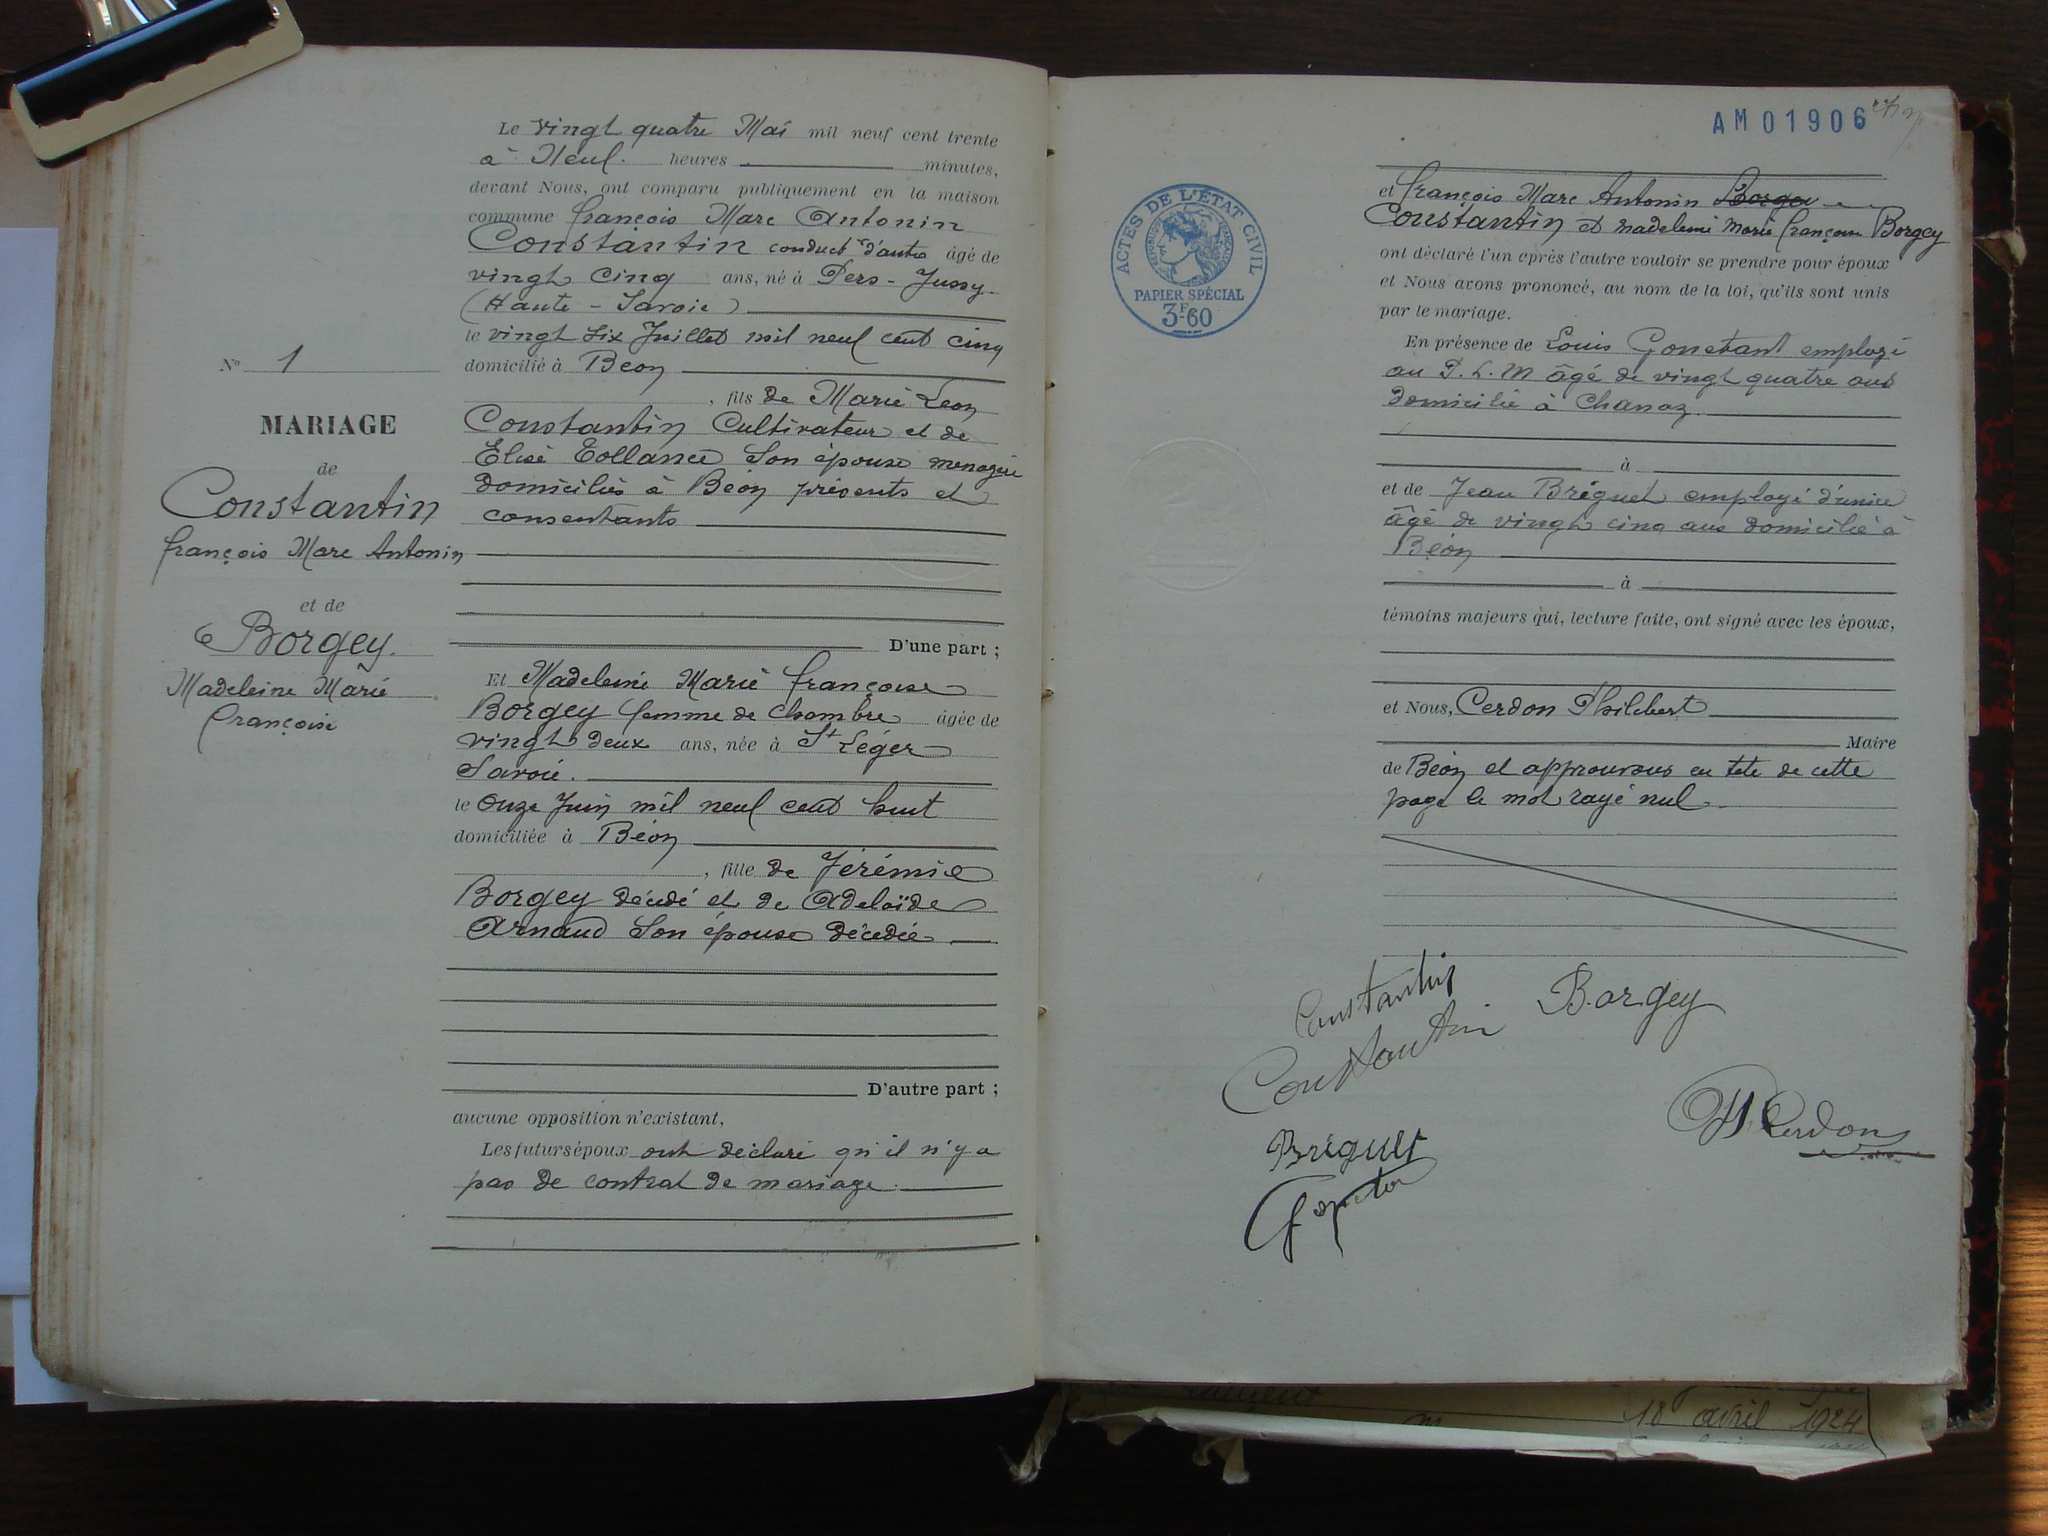 Le vingt quatre Mai mil neuf cent trente
à Neuf heures minutes,
devant Nous, ont comparu publiquement en la maison
commune François Marc Antonin
Constantin conductr d'autos âgé de
vingt cinq ans, né à Pers-Jussy
(Haute-Savoie)
le vingt six Juillet mil neuf cent cinq
domicilié à Béon
, fils de Marie Léon
Constantin Cultivateur et de
Elisé son épouse menagère
domiciliés à Béon présents et
consentants
D'une part ;
Et Madeleine Marie Françoise
Borgey femme de chambre âgée de
vingt deux ans, née à St Léger
Savoie.
le onze Juin mil neuf cent huit
domiciliée à Béon
, fille de Jérémie
Borgey décédé et de Adelaïde
Arnaud son épouse décédée
D'autre part ;
aucune opposition n'existant,
Les futurs époux ont déclaré qu'il n'y a
pas de contrat de mariage.
No 1
MARIAGE
de
Constantin
François Marc Antonin
et de
Borgey.
Madeleine Marie
Françoise
AM 01906
ACTES DE L'ÉTAT CIVIL
PAPIER SPÉCIAL
3F60
et François Marc Antonin
Constantin et Madeleine Marie Françoise Borgey
ont déclaré l'un après l'autre vouloir se prendre pour époux
et Nous avons prononcé, au nom de la loi, qu'ils sont unis
par le mariage.
En présence de Louis employé
au P.L.M âgé de vingt quatre ans
domicilié à Chanaz
à
et de Jean Bréguet employé d'usine
âgé de vingt cinq ans domicilié à
Béon
à
témoins majeurs qui, lecture faite, ont signé avec les époux,
et Nous, Cerdon Philibert
Maire
de Béon et approuvons en tête de cette
page le mot rayé nul
Constantin
Constantin
Borgey
Cerdon
Bréguet
18 avril 1924